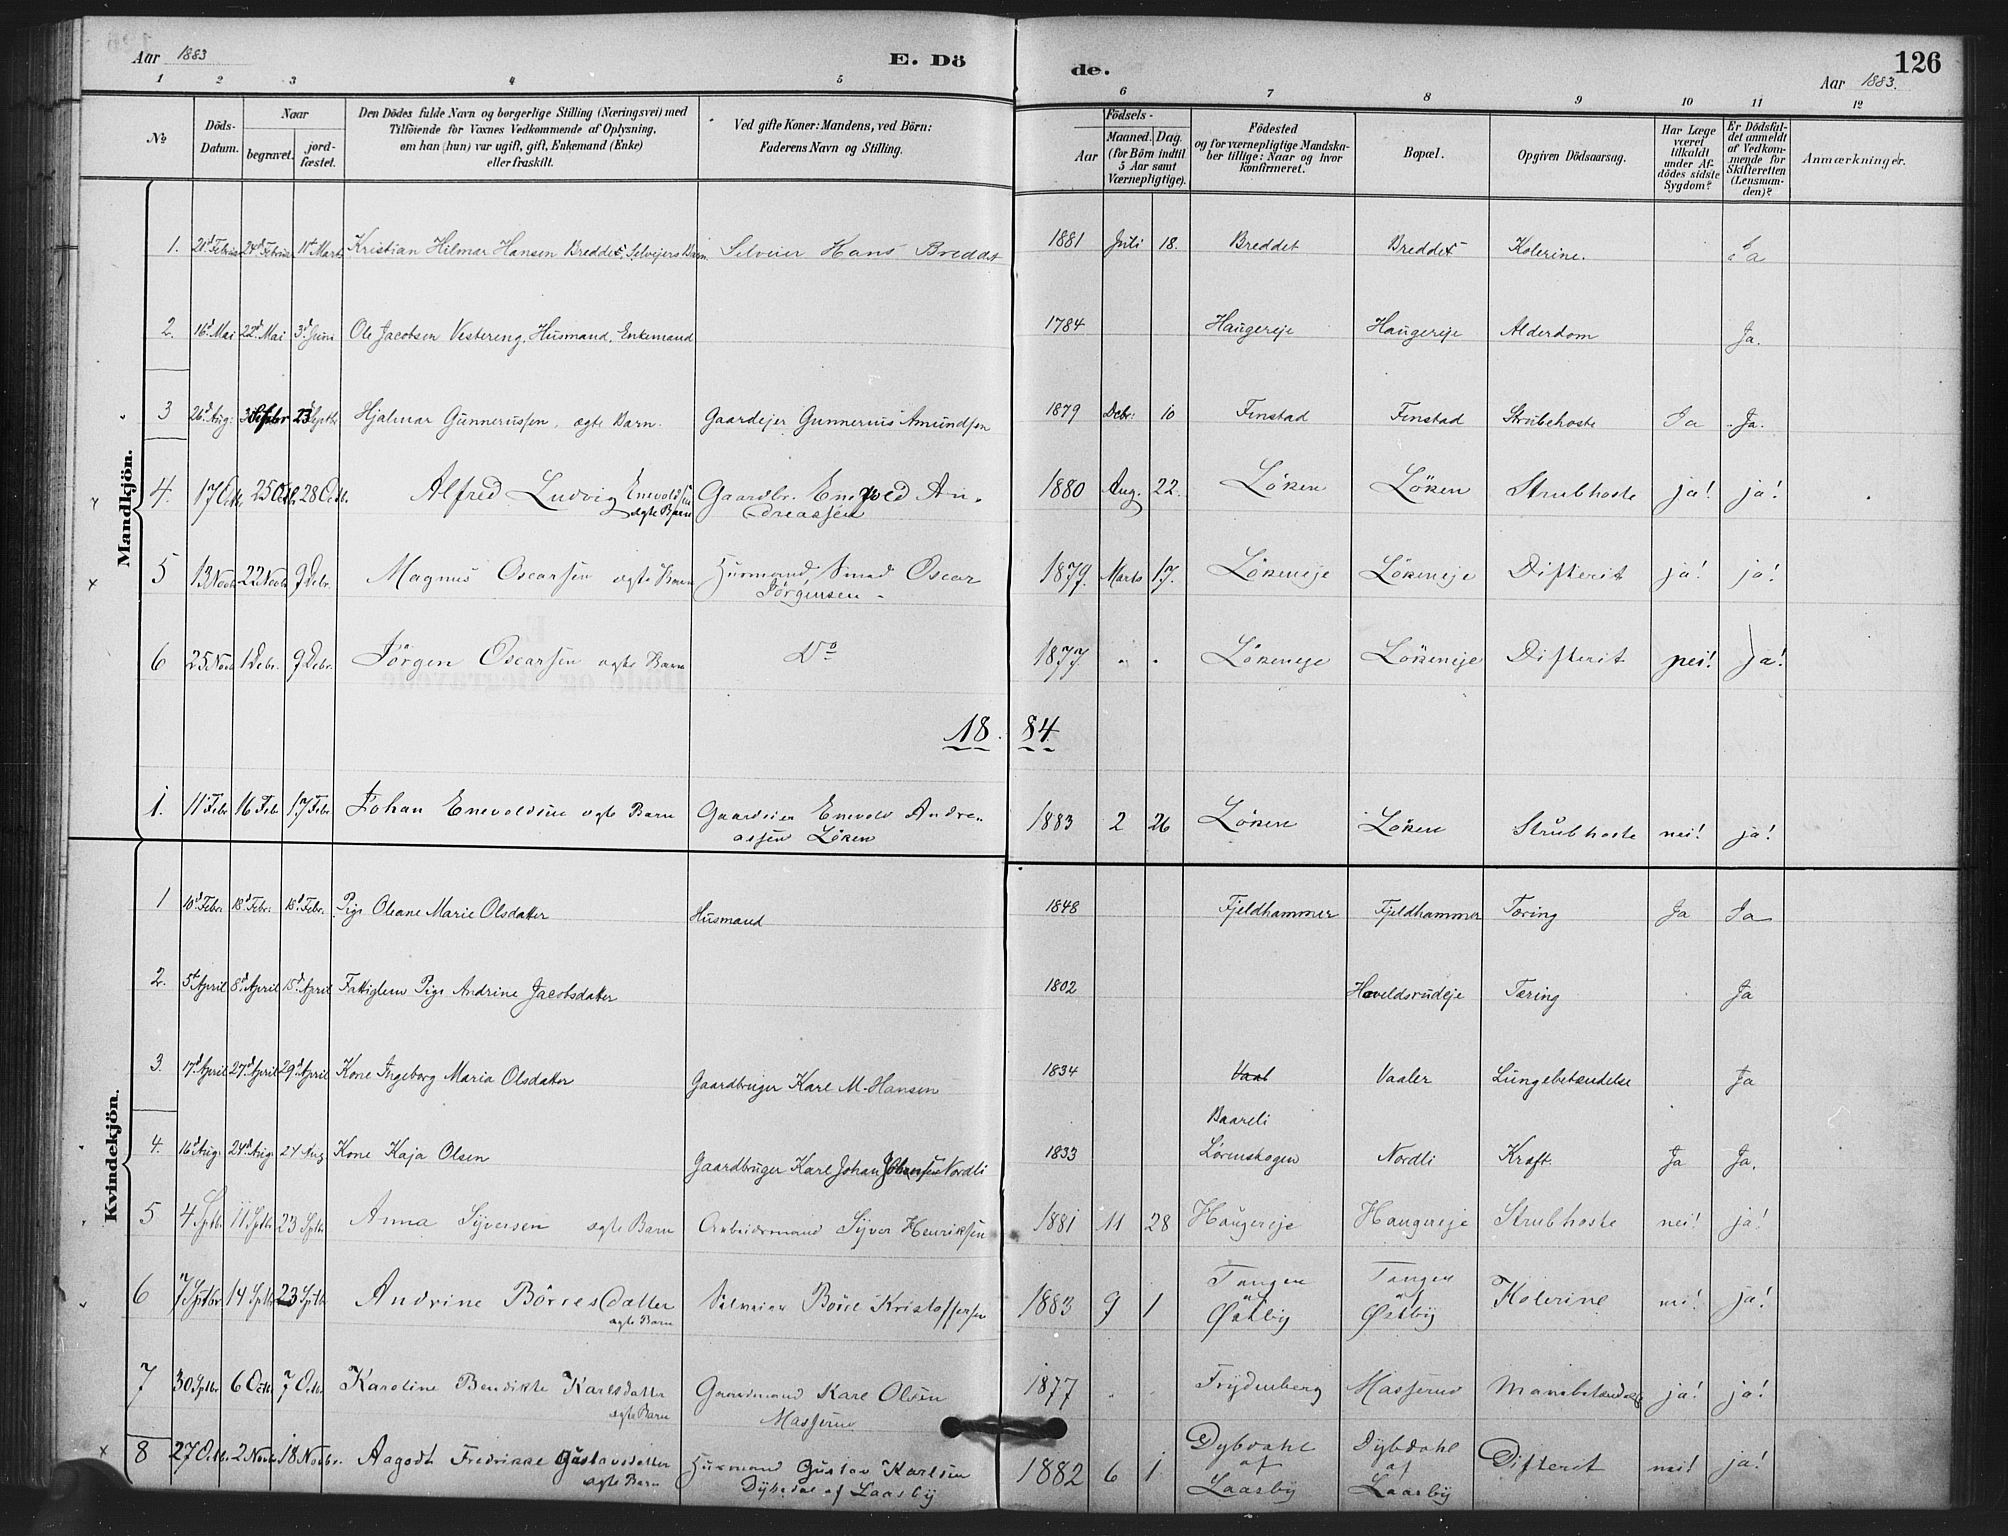 Aar 1883
E. Dö
de.
126
Aar 1883.
1 2 3 4 5 6 7 8 9 10 11 12
No
Döds-Datum.
Naar
begravet.
jordfæstet.
Den Dödes fulde Navn og borgerlige Stilling (Næringsvei) med
Tilföiende for Voxnes Vedkommende af Oplysning,
om han (hun) var ugift, gift, Enkemand (Enke)
eller fraskilt.
Ved gifte Koner: Mandens, ved Börn:
Faderens Navn og Stilling.
Födsels-
Aar
Maaned. Dag.
(for Börn indtil
5 Aar samt
Værnepligtige).
Födested
og for værnepligtige Mandska-
ber tillige: Naar og hvor
konfirmeret.
Bopæl.
Opgiven Dödsaarsag.
Har Læge
været
tilkaldt
under Af-
dödes sidste
Sygdom?
Er Dödsfal-
det anmeldt
af Vedkom-
mende for
Skifteretten
(Lensman-
den)?
Anmærkninger.
Mandkjön.
1. 21d Febr 24d Febr 11t Marts Kristian Hilmar Hansen Breddet, Selvejers Barn. Selveier Hans Breddet 1881 Juli 18. Breddet Breddet Kolerine. Ja
2. 16d Mai 22d Mai 3d Juni Ole Jacobsen Vestereng, Husmand, Enkemand 1784 Haugereje Haugereje Alderdom Ja.
3 26d Aug. 3 Septbr 23d Septbr Hjalmar Gunnerussen, ægte Barn. Gaardejer Gunnerius Amundsen 1879 Debr. 10 Finstad Finstad Strubehoste Ja Ja.
4. 17 Octb. 25 Octb. 28 Octb. Alfred Ludvig Enevoldsen Gaardbr. Enevold An-
ægte Barn dreassen 1880 Aug. 22. Löken Löken Strubhoste ja! ja!
5 13 Novb. 22 Novb. 9 Debr. Magnus Oscarsen ægte Barn Husmand, Smed Oscar
Jörgensen 1879. Marts 17. Lökeneje Lökeneje Difterit ja! ja!
6 25 Novb. 1 Debr. 9 Debr. Jörgen Oscarsen ægte Barn Do 1877. Lökeneje Lökeneje Difterit nei! ja!
18 84.
1. 11 Febr 16 Febr 17 Febr. Johan Enevoldsen ægte Barn Gaardeier Enevold Andre-
assen Löken 1883 2 26 Löken Löken Strubhoste nei! ja!
Kvindekjön.
1 10d Febr. 18d Febr. 18d Febr. Pige Oleane Marie Olsdatter Husmand 1848 Fjeldhammer Fjeldhammer Tæring Ja Ja
2. 5t April 8d April 15d April Fattiglem Pige Andrine Jacobsdatter 1802 Haveldsrudeje Tæring Ja
3. 17d April 27d April 29d April Kone Ingeborg Maria Olsdatter Gaardbruger Karl M. Hansen 1834 Vaal Vaaler Lungebetændelse Ja
Baareli
4. 16d Aug. 24d Aug. 27 Aug Kone Kaja Olsen Gaardbruger Karl Johan Johansen Nordli 1833 Lørenskogen Nordli Kræft. Ja Ja.
5 4 Sptbr. 11 Sptbr. 23 Sptbr. Anna Syversen ægte Barn Arbeidsmand Syver Henriksen 1881 11 28 Haugereje Haugereje Strubhoste nei! ja!
6 7 Sptbr 14 Sptbr 23 Sptbr. Andrine Börresdatter Selveier Börre Kristoffersen
ægte Barn 1883 9 1 Tangen af Østby Tangen af Østby Kolerine nei! ja!
7 30 Sptbr. 6 Octb. 7 Octb. Karoline Bendikte Karlsdatter Gaardmand Karl Olsen
ægte Barn Masserud 1877 Frydenberg Masserud ja! ja!
8 27 Octb. 2 Novb. 18 Novbr. Aagodt Fredrikke Gustavsdatter Husmand Gustav Karlsen
ægte Barn Dybedal af Laasby 1882 6 1 Dybdahl af Laasby Dybdahl af Laasby Difterit nei! ja!